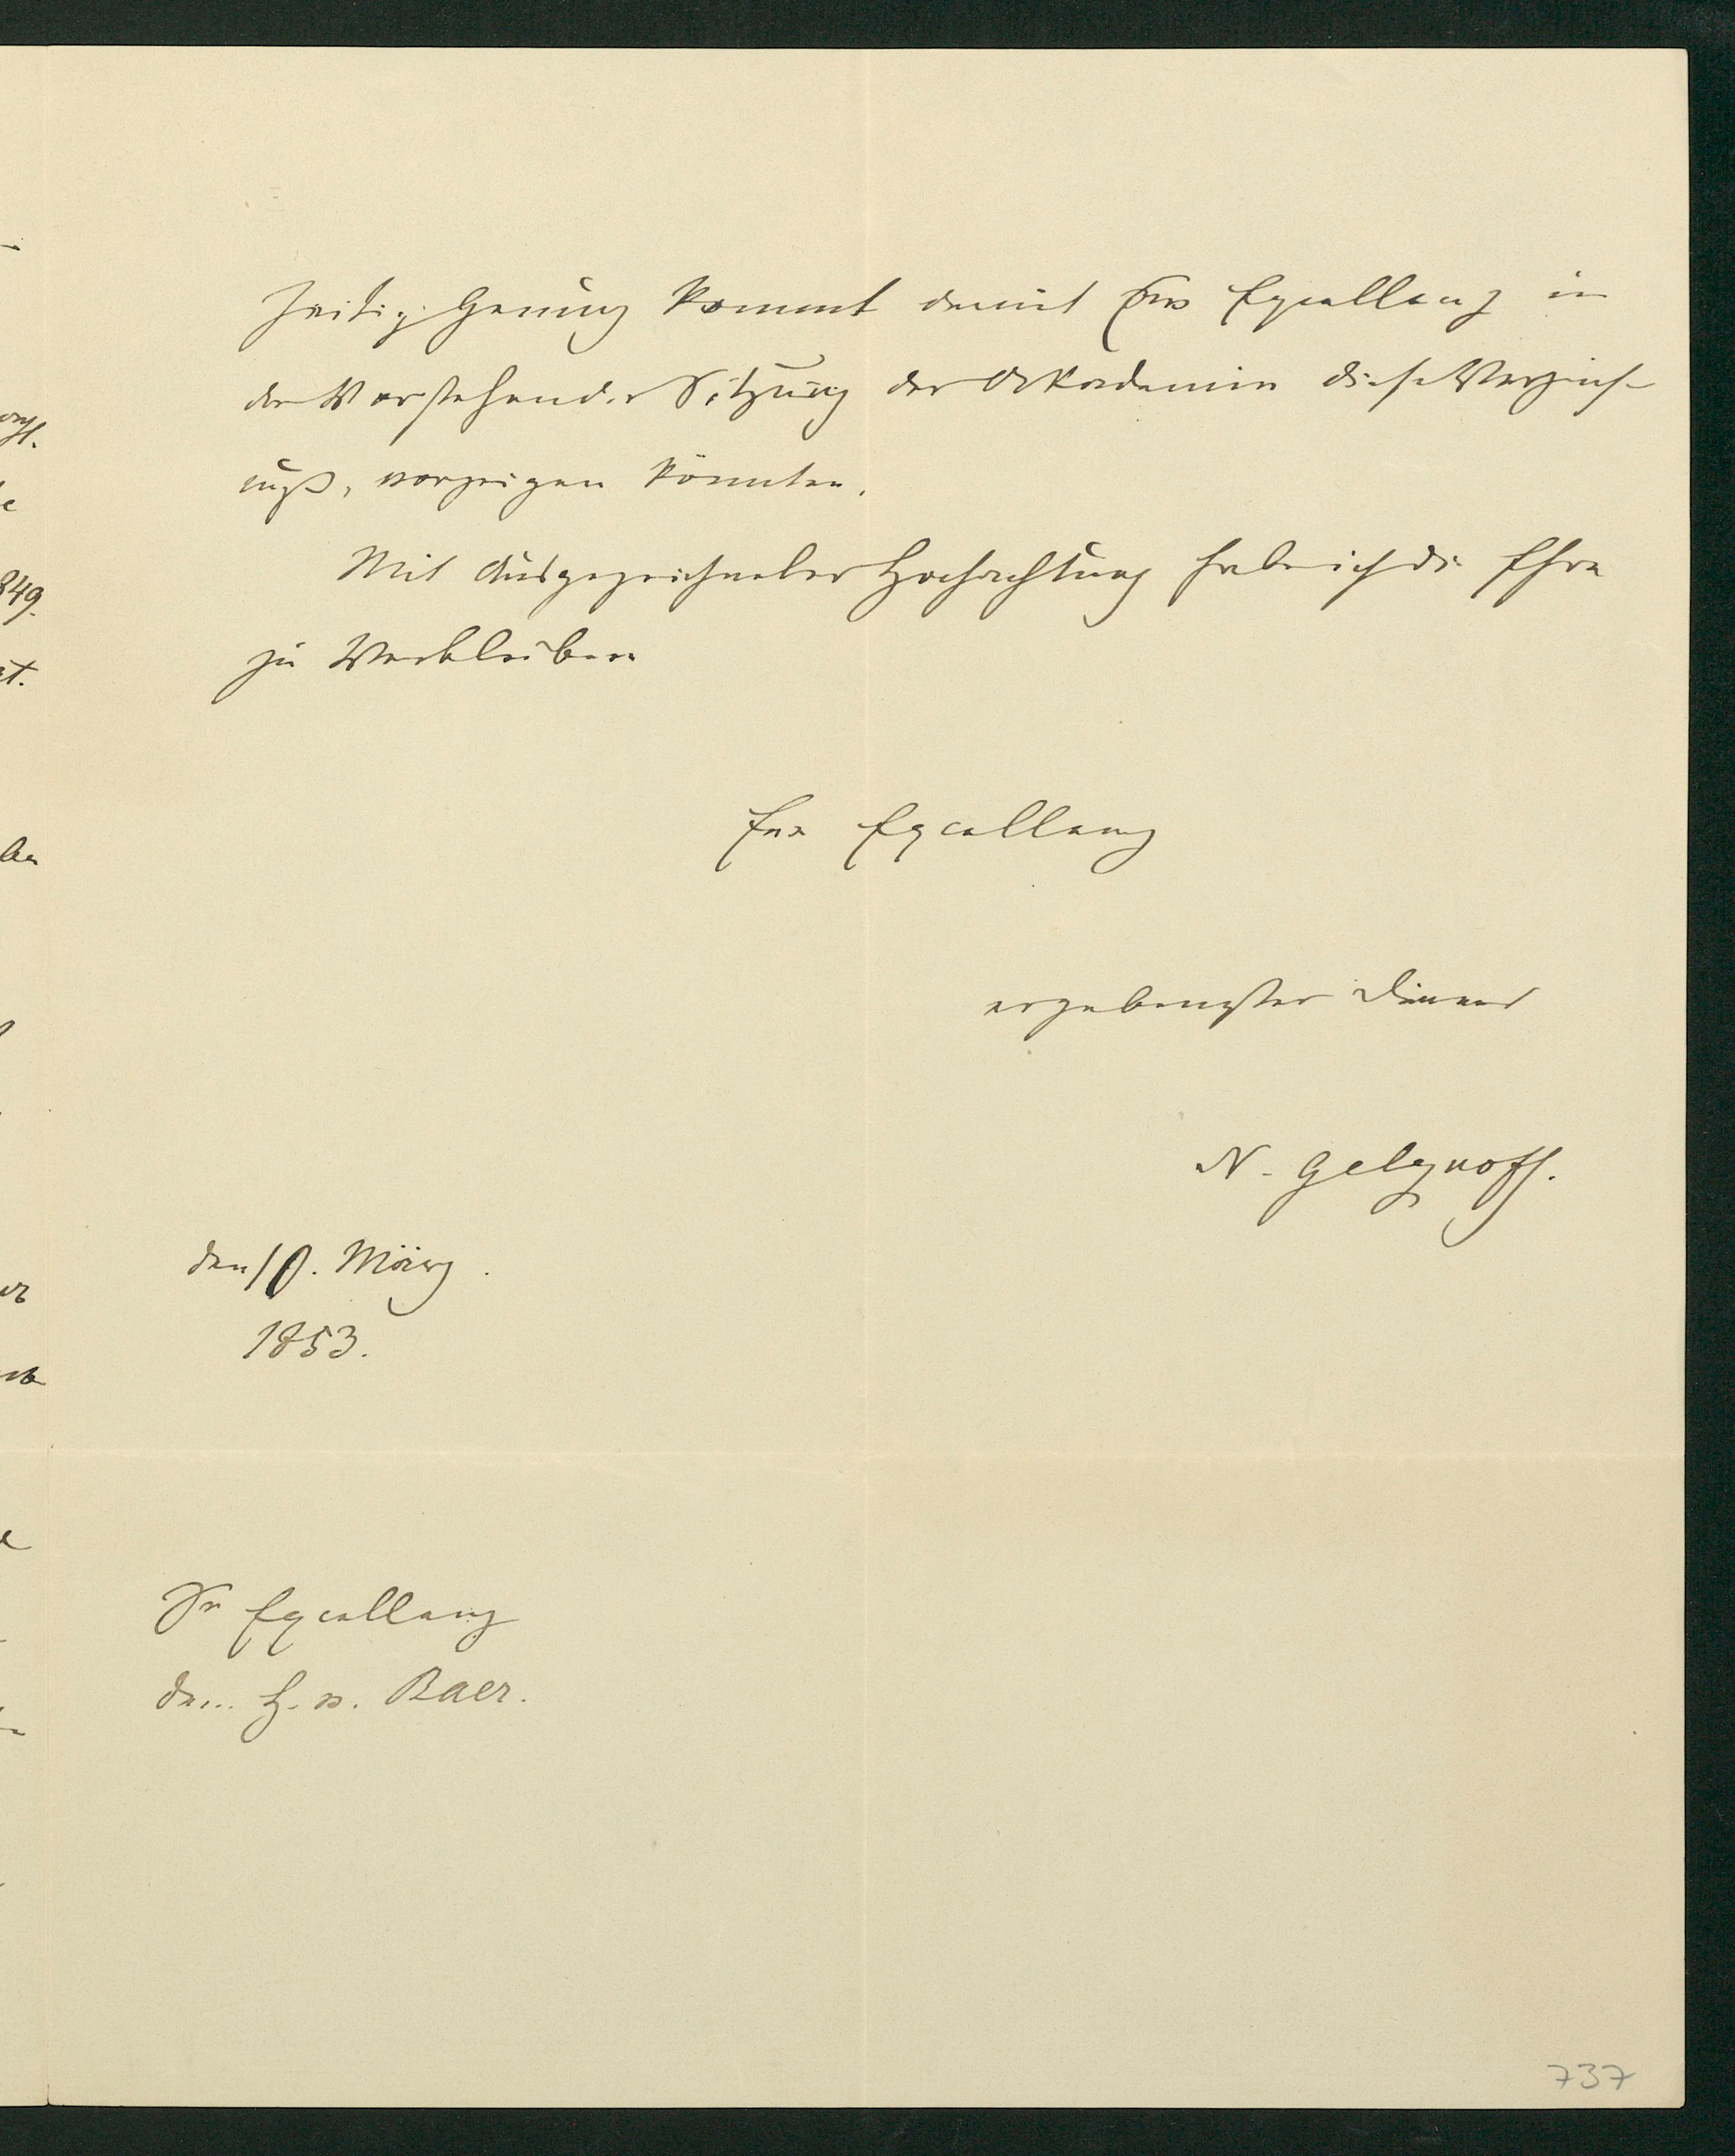 zeitig genung kommt damit Eur Excellenz in
der Vorstehender Sitzung der Akademie diese Verzeich-
nuß, vorzeigen könnten.
Mit Ausgezeichneter Hochachtung habe ich die Ehre
zu Verbleiben
Eur Excellenz
ergebenster Diener
N. Geleznoff.
den 10. März.
1853.
Sr Excellenz
dem H. v. Baer.
737